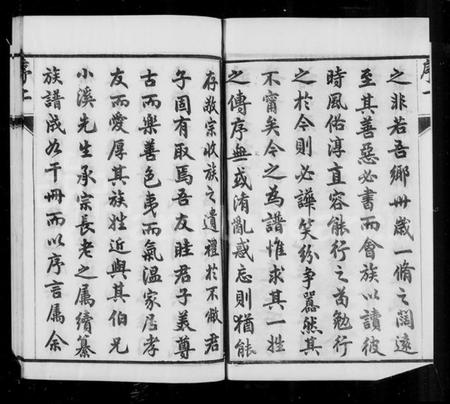 序一
之非若吾鄉卅歲一脩之闊遠
至其善惡必書而會族以讀彼
時風俗淳直容能行之苟勉行
之於今則必譁笑紛爭囂然其
不甯矣今之為譜惟求其一姓
之傳序無或淆亂惑忘則猶能
存敬宗收族之遺禮於不儆君
子固有取焉吾友眭君子義尊
古而樂善色夷而氣溫家居孝
友而愛厚其族姓近與其伯兄
小溪先生承宗長老之屬續纂
族譜成如干冊而以序言屬余
序二